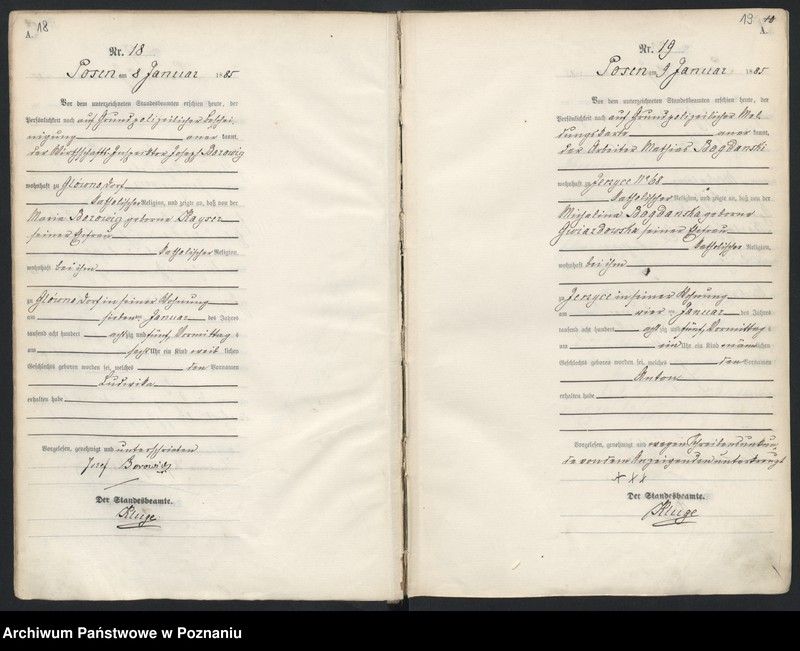 18
A.
Nr. 18
Posen am 8 Januar 1885
Vor dem unterzeichneten Standesbeamten erschien heute, der
Persönlichkeit nach auf Grund polizeilicher Beschei-
nigung anerkannt,
der Wirthschafts Inspektor Jozef Borowig
wohnhaft zu Glówno Dorf
katholischer Religion, und zeigte an, daß von der
Maria Borowig geborne Kayser
seiner Ehefrau
katholischer Religion
wohnhaft bei ihm
zu Glówno Dorf in seiner Wohnung
am sieben ten Januar des Jahres
tausend acht hundert achtzig und fünf, Vormittag s
um sechs Uhr ein Kind weib lichen
Geschlechts geboren worden sei, welches den Vornamen
Ludwika
erhalten habe
Vorgelesen, genehmigt und unterschrieben
Jozef Borowig
Der Standesbeamte.
Kluge
19 10
A.
Nr. 19
Posen am 9 Januar 1885
Vor dem unterzeichneten Standesbeamten erschien heute, der
Persönlichkeit nach auf Grund polizeilicher Mel
dungskarte anerkannt,
der Arbeiter Mathias Bagdanski
wohnhaft zu Jerzyce No 68
katholischer Religion, und zeigte an, daß von der
Michalina Bagdanska geborne
Gwiazdowska seiner Ehefrau
katholischer Religion,
wohnhaft bei ihm
zu Jerzyce in seiner Wohnung
am vier ten Januar des Jahres
tausend acht hundert achtzig und fünf, Vormittag s
um ein Uhr ein Kind männ lichen
Geschlechts geboren worden sei, welches den Vornamen
Anton
erhalten habe
Vorgelesen, genehmigt und wegen Schreibensunkun-
de von dem Anzeigenden unterkreuzt
+++
Der Standesbeamte.
Kluge
Archiwum Państwowe w Poznaniu